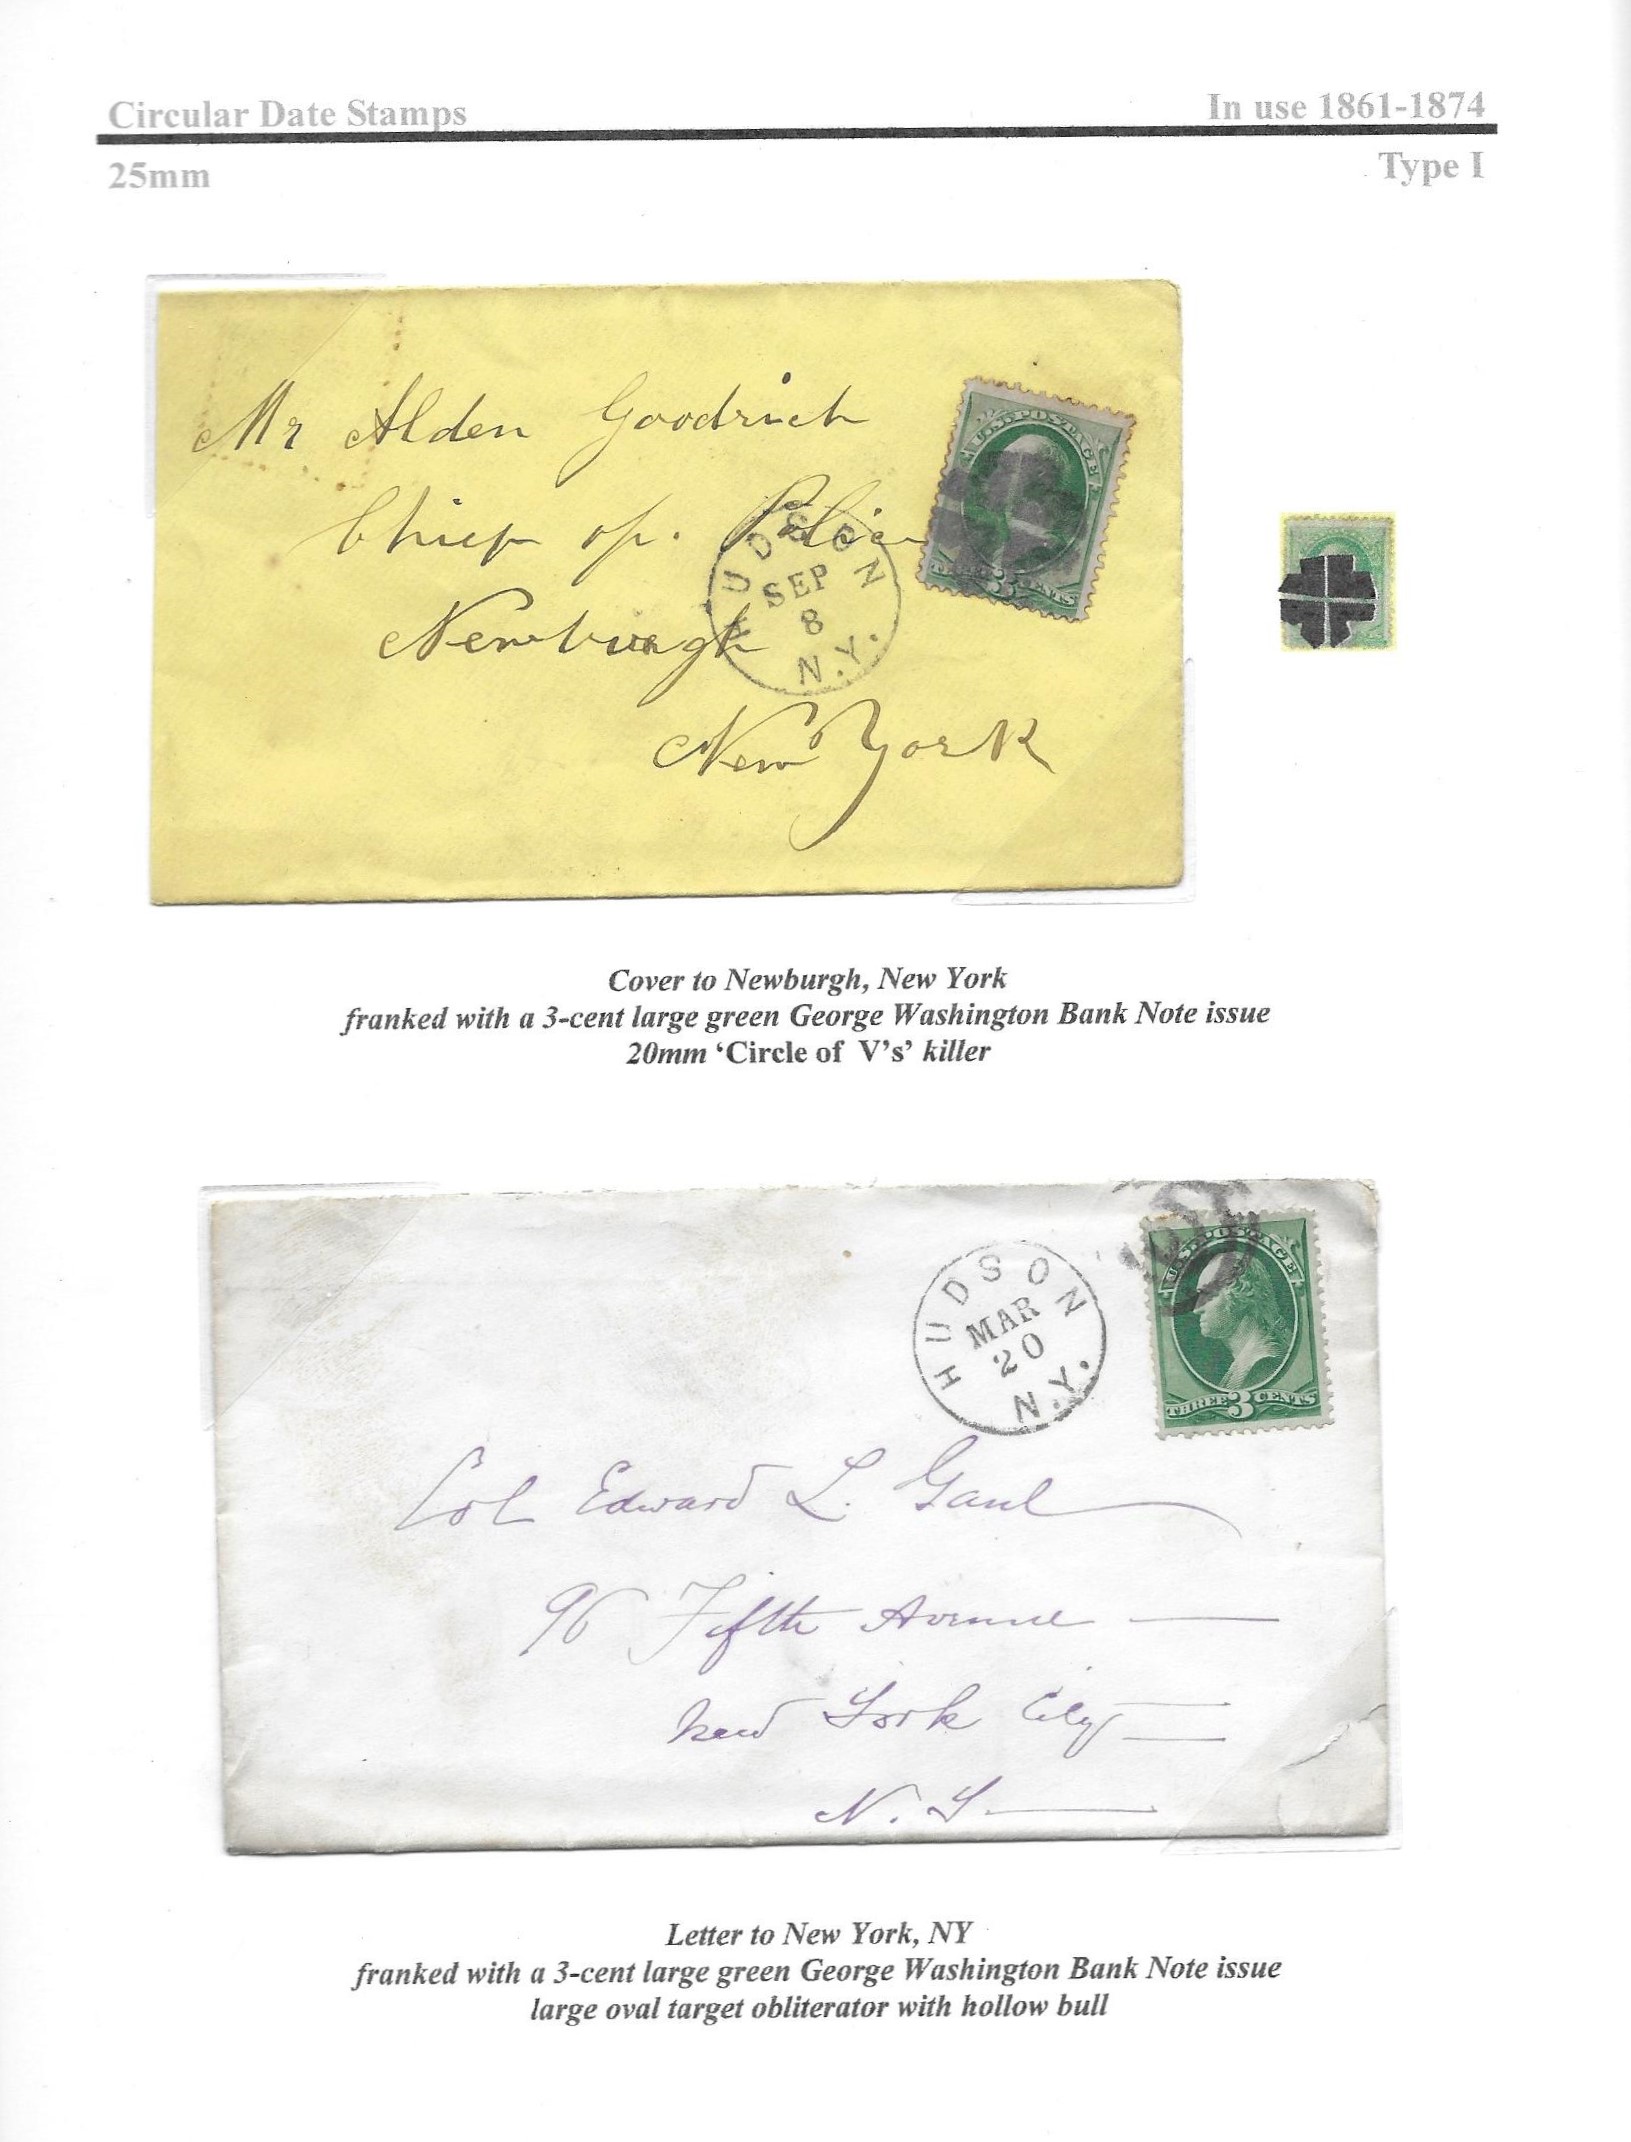 Circular Date Stamps
In use 1861-1874
25mm
Type I
Mr Alden Goodrich
Chief of. Police
Newburgh
New York
HUDSON
SEP
8
N.Y.
U.S. POSTAGE
THREE 3 CENTS
Cover to Newburgh, New York
franked with a 3-cent large green George Washington Bank Note issue
20mm ‘Circle of V’s’ killer
HUDSON
MAR
20
N.Y.
U.S. POSTAGE
THREE 3 CENTS
Col Edward L. Gaul
96 Fifth Avenue
New York City
N. Y.
Letter to New York, NY
franked with a 3-cent large green George Washington Bank Note issue
large oval target obliterator with hollow bull